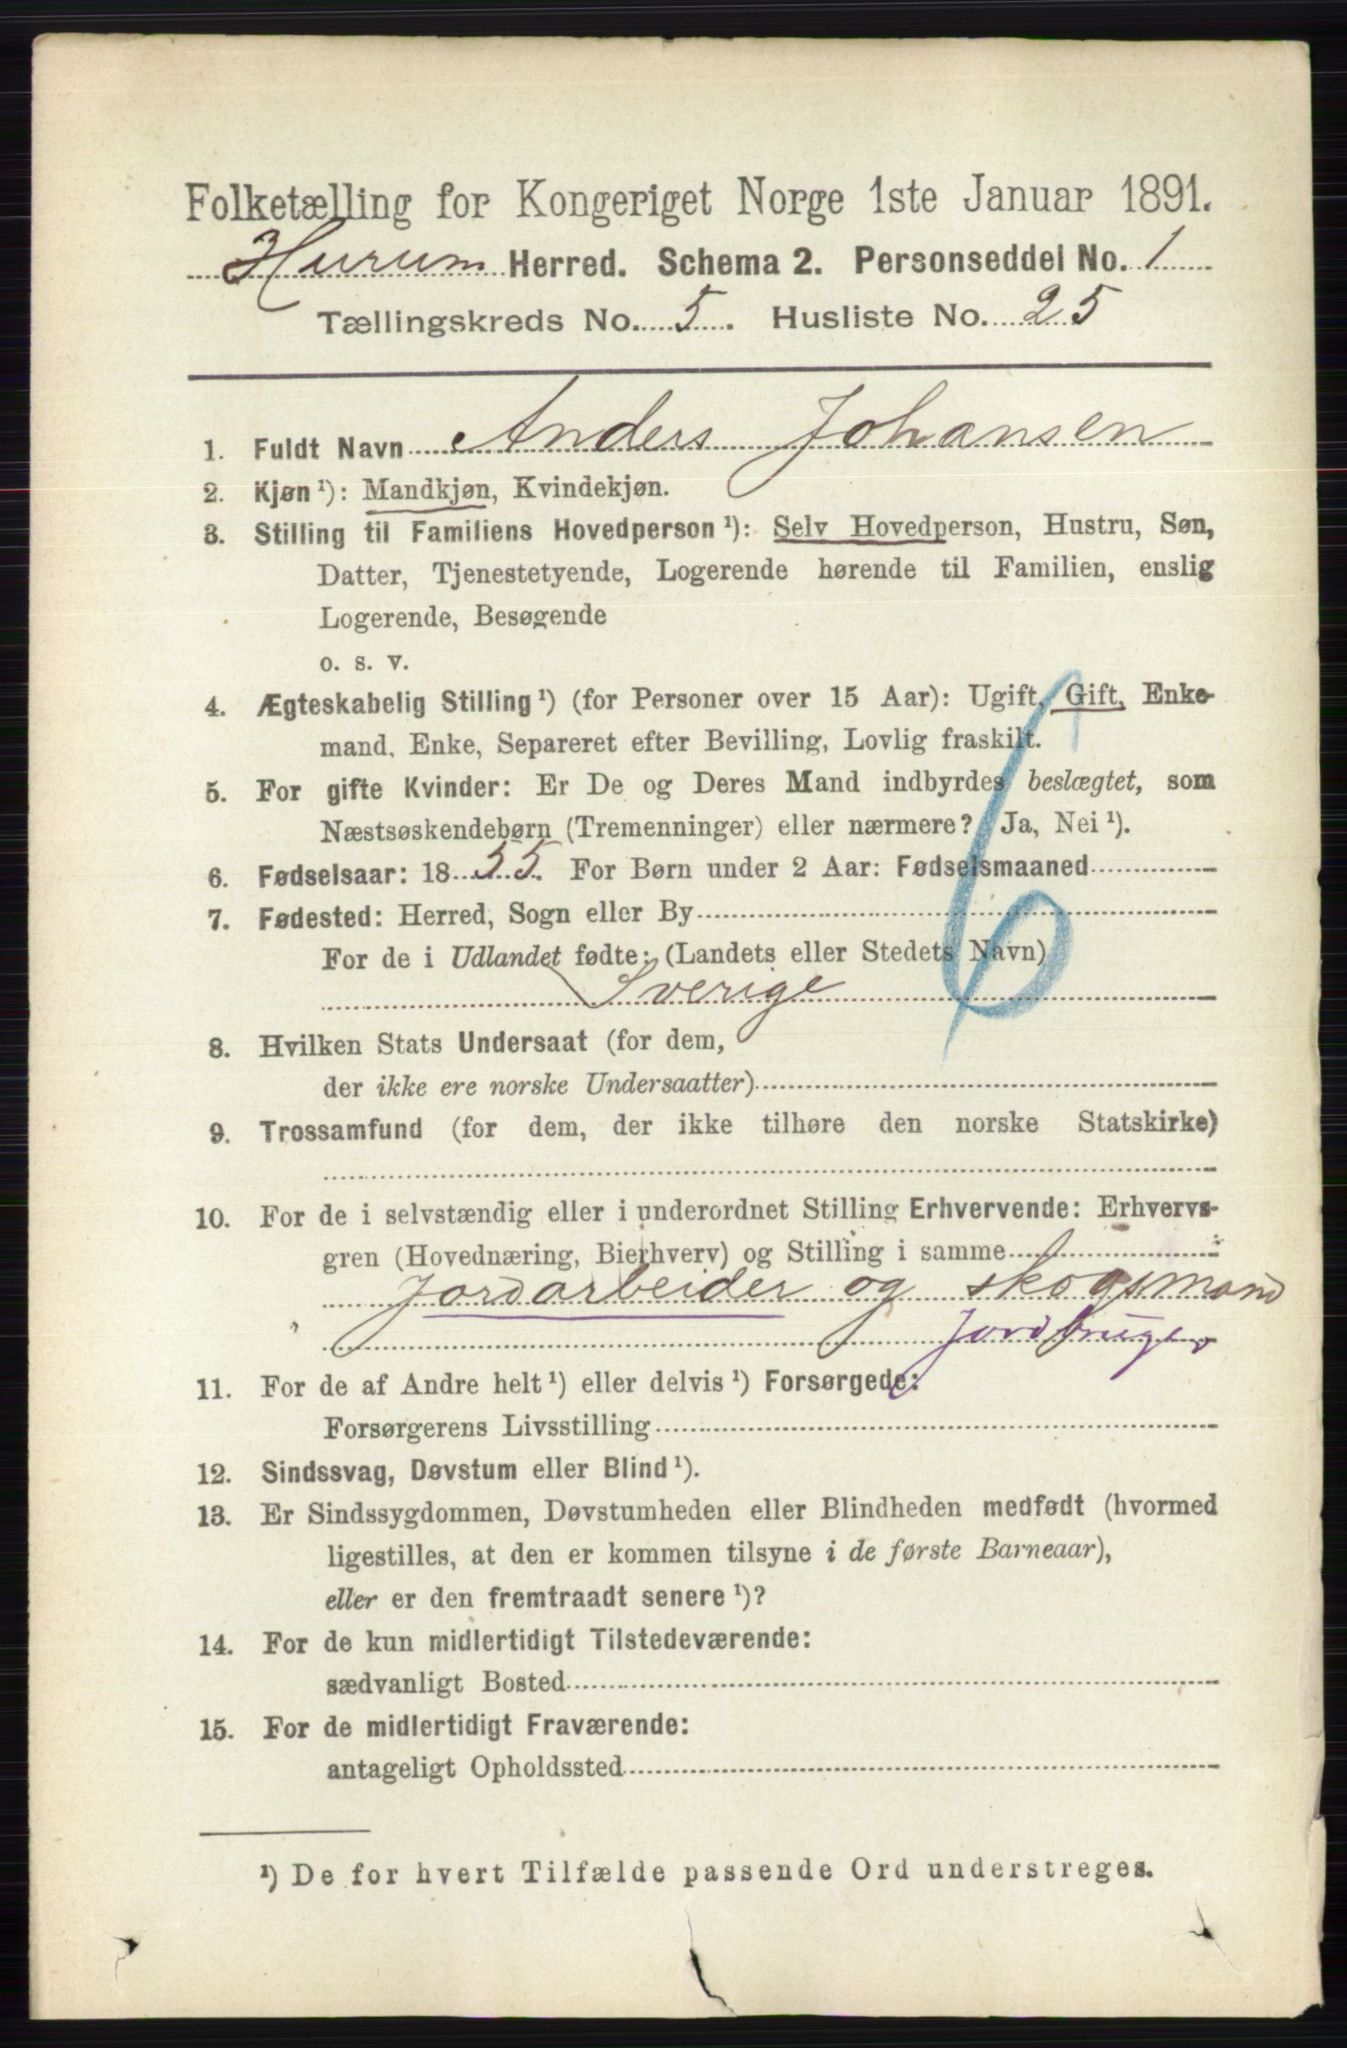 Folketælling for Kongeriget Norge 1ste Januar 1891.
Hurum Herred. Schema 2. Personseddel No. 1
Tællingskreds No. 5. Husliste No. 25
1. Fuldt Navn Anders Johansen
2. Kjøn ¹): Mandkjøn, Kvindekjøn.
3. Stilling til Familiens Hovedperson ¹): Selv Hovedperson, Hustru, Søn,
Datter, Tjenestetyende, Logerende hørende til Familien, enslig
Logerende, Besøgende
o. s. v.
4. Ægteskabelig Stilling ¹) (for Personer over 15 Aar): Ugift, Gift, Enke-
mand, Enke, Separeret efter Bevilling, Lovlig fraskilt.
5. For gifte Kvinder: Er De og Deres Mand indbyrdes beslægtet, som
Næstsøskendebørn (Tremenninger) eller nærmere? Ja, Nei ¹).
6. Fødselsaar: 1855. For Børn under 2 Aar: Fødselsmaaned
7. Fødested: Herred, Sogn eller By
For de i Udlandet fødte: (Landets eller Stedets Navn)
Sverige
8. Hvilken Stats Undersaat (for dem,
der ikke ere norske Undersaatter)
9. Trossamfund (for dem, der ikke tilhøre den norske Statskirke)
10. For de i selvstændig eller i underordnet Stilling Erhvervende: Erhvervs-
gren (Hovednæring, Bierhverv) og Stilling i samme
Jordarbeider og skogsmand
Jordbruger
11. For de af Andre helt ¹) eller delvis ¹) Forsørgede:
Forsørgerens Livsstilling
12. Sindssvag, Døvstum eller Blind ¹).
13. Er Sindssygdommen, Døvstumheden eller Blindheden medfødt (hvormed
ligestilles, at den er kommen tilsyne i de første Barneaar),
eller er den fremtraadt senere ¹)?
14. For de kun midlertidigt Tilstedeværende:
sædvanligt Bosted
15. For de midlertidigt Fraværende:
antageligt Opholdssted
¹) De for hvert Tilfælde passende Ord understreges.